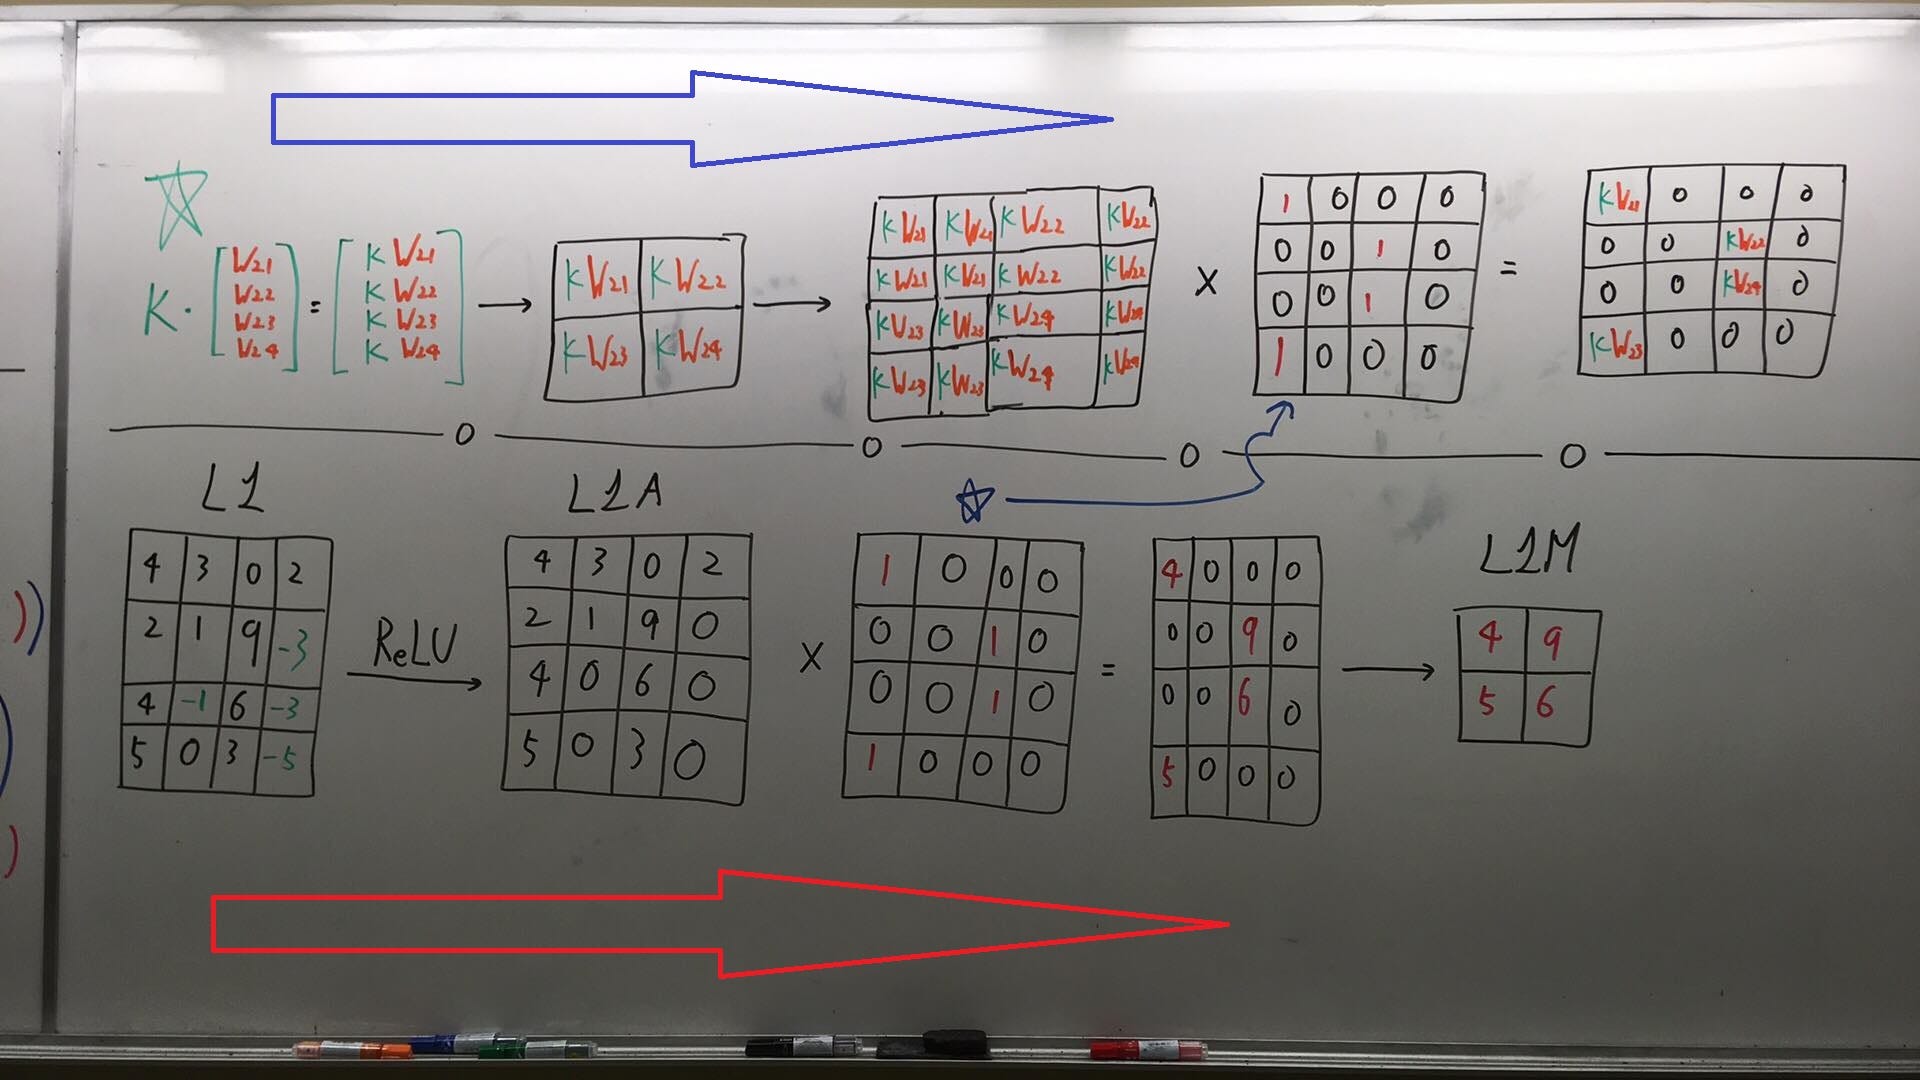 K · [W21 W22 W23 W24] = [K W21 K W22 K W23 K W24]
KW21 KW22
KW23 KW24
KW21 KW21 KW22 KW22
KW21 KW21 KW22 KW22
KW23 KW23 KW24 KW24
KW23 KW23 KW24 KW24
×
1 0 0 0
0 0 1 0
0 0 1 0
1 0 0 0
=
KW21 0 0 0
0 0 KW22 0
0 0 KW24 0
KW23 0 0 0
L1
4 3 0 2
2 1 9 -3
4 -1 6 -3
5 0 3 -5
ReLU
L1A
4 3 0 2
2 1 9 0
4 0 6 0
5 0 3 0
×
1 0 0 0
0 0 1 0
0 0 1 0
1 0 0 0
=
4 0 0 0
0 0 9 0
0 0 6 0
5 0 0 0
L1M
4 9
5 6